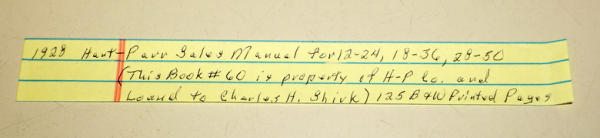 1928 Hart-Parr Sales Manual for 12-24, 18-36, 28-50
(This Book # 60 is property of H-P Co. and
Loand to Charles H. Shirk) 125 B&W Printed Pages